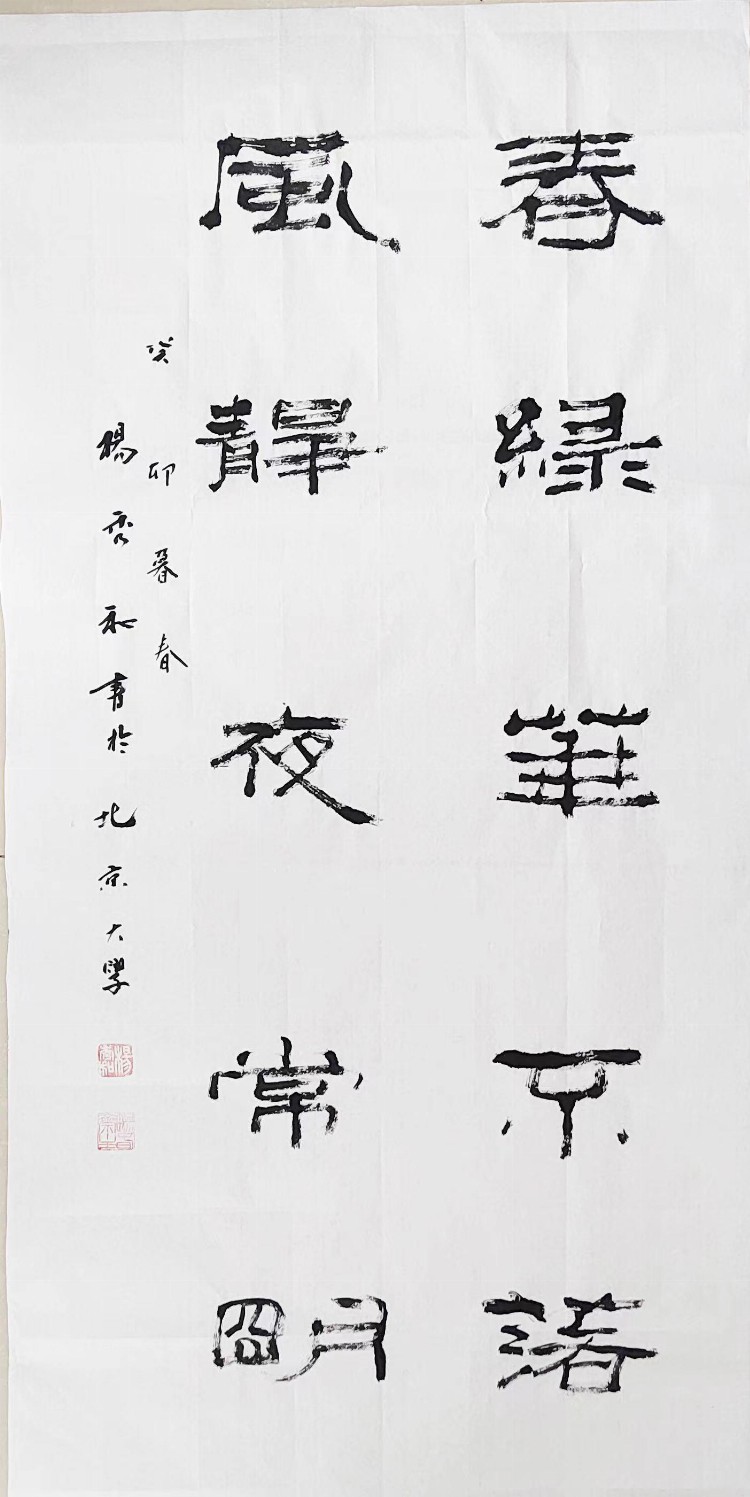 春緑華不
風靜夜常明
癸卯暮春
楊秀和書於北京大學